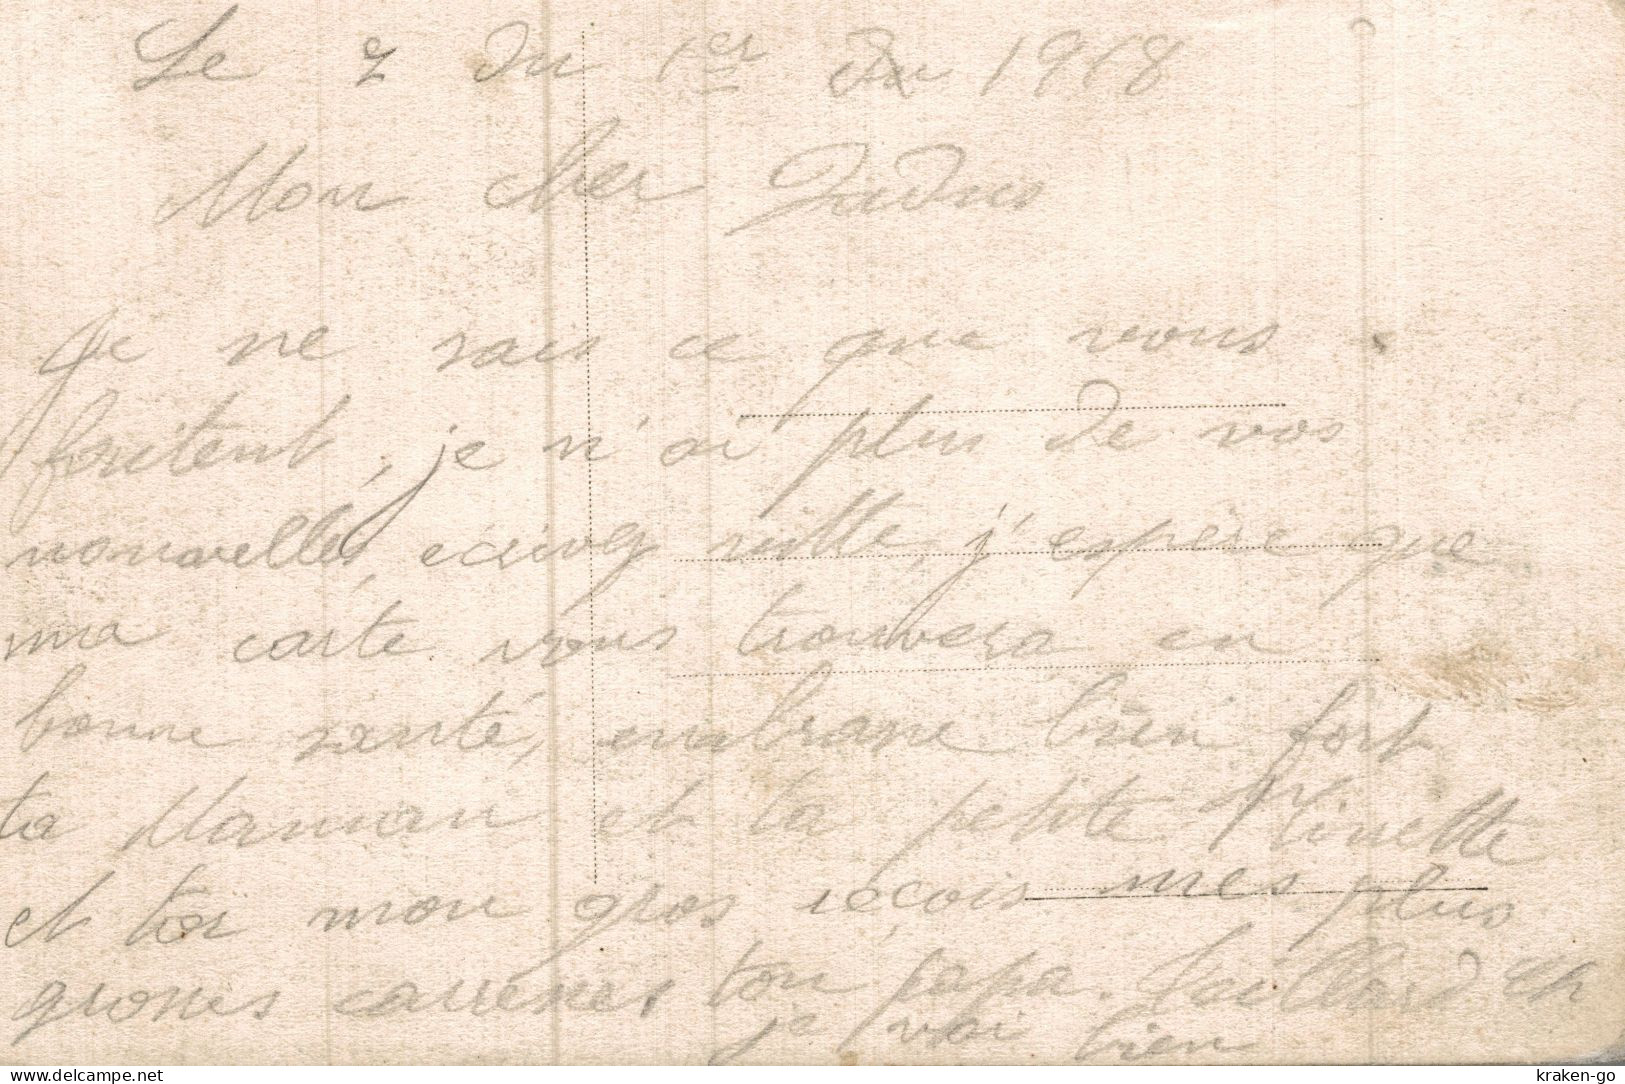 Le 7 du 1er 1918
Mon cher
Je ne sais ce que vous
foutent, je n'ai plus de vos
nouvelles, ecrivez vitte, j'espère que
ma carte vous trouvera en
bonne santé, embrasse bien fort
ta Maman et ta petite Ninette
et toi mon gros reçois mes plus
grosses carresses ton papa. Gaillard Ch
je vai bien
kraken-go